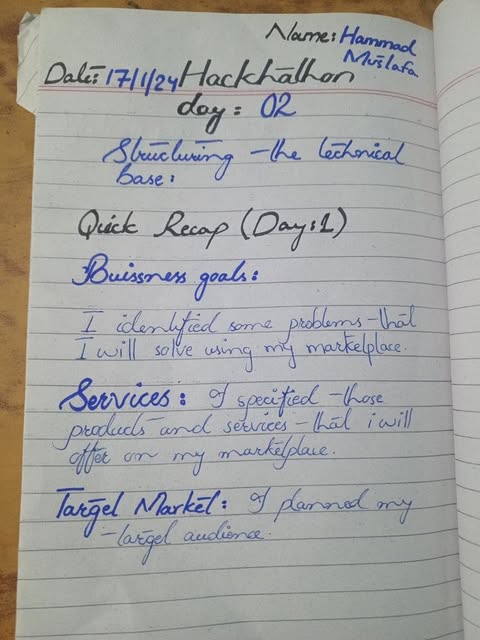 Name: Hammad
Mustafa
Date: 17/1/24 Hackhathon
day: 02
Structuring the technical
base:
Quick Recap (Day:1)
Buissness goals:
I identified some problems that
I will solve using my marketplace.
Services: I specified those
products and services that i will
offer on my marketplace.
Target Market: I planned my
target audience.